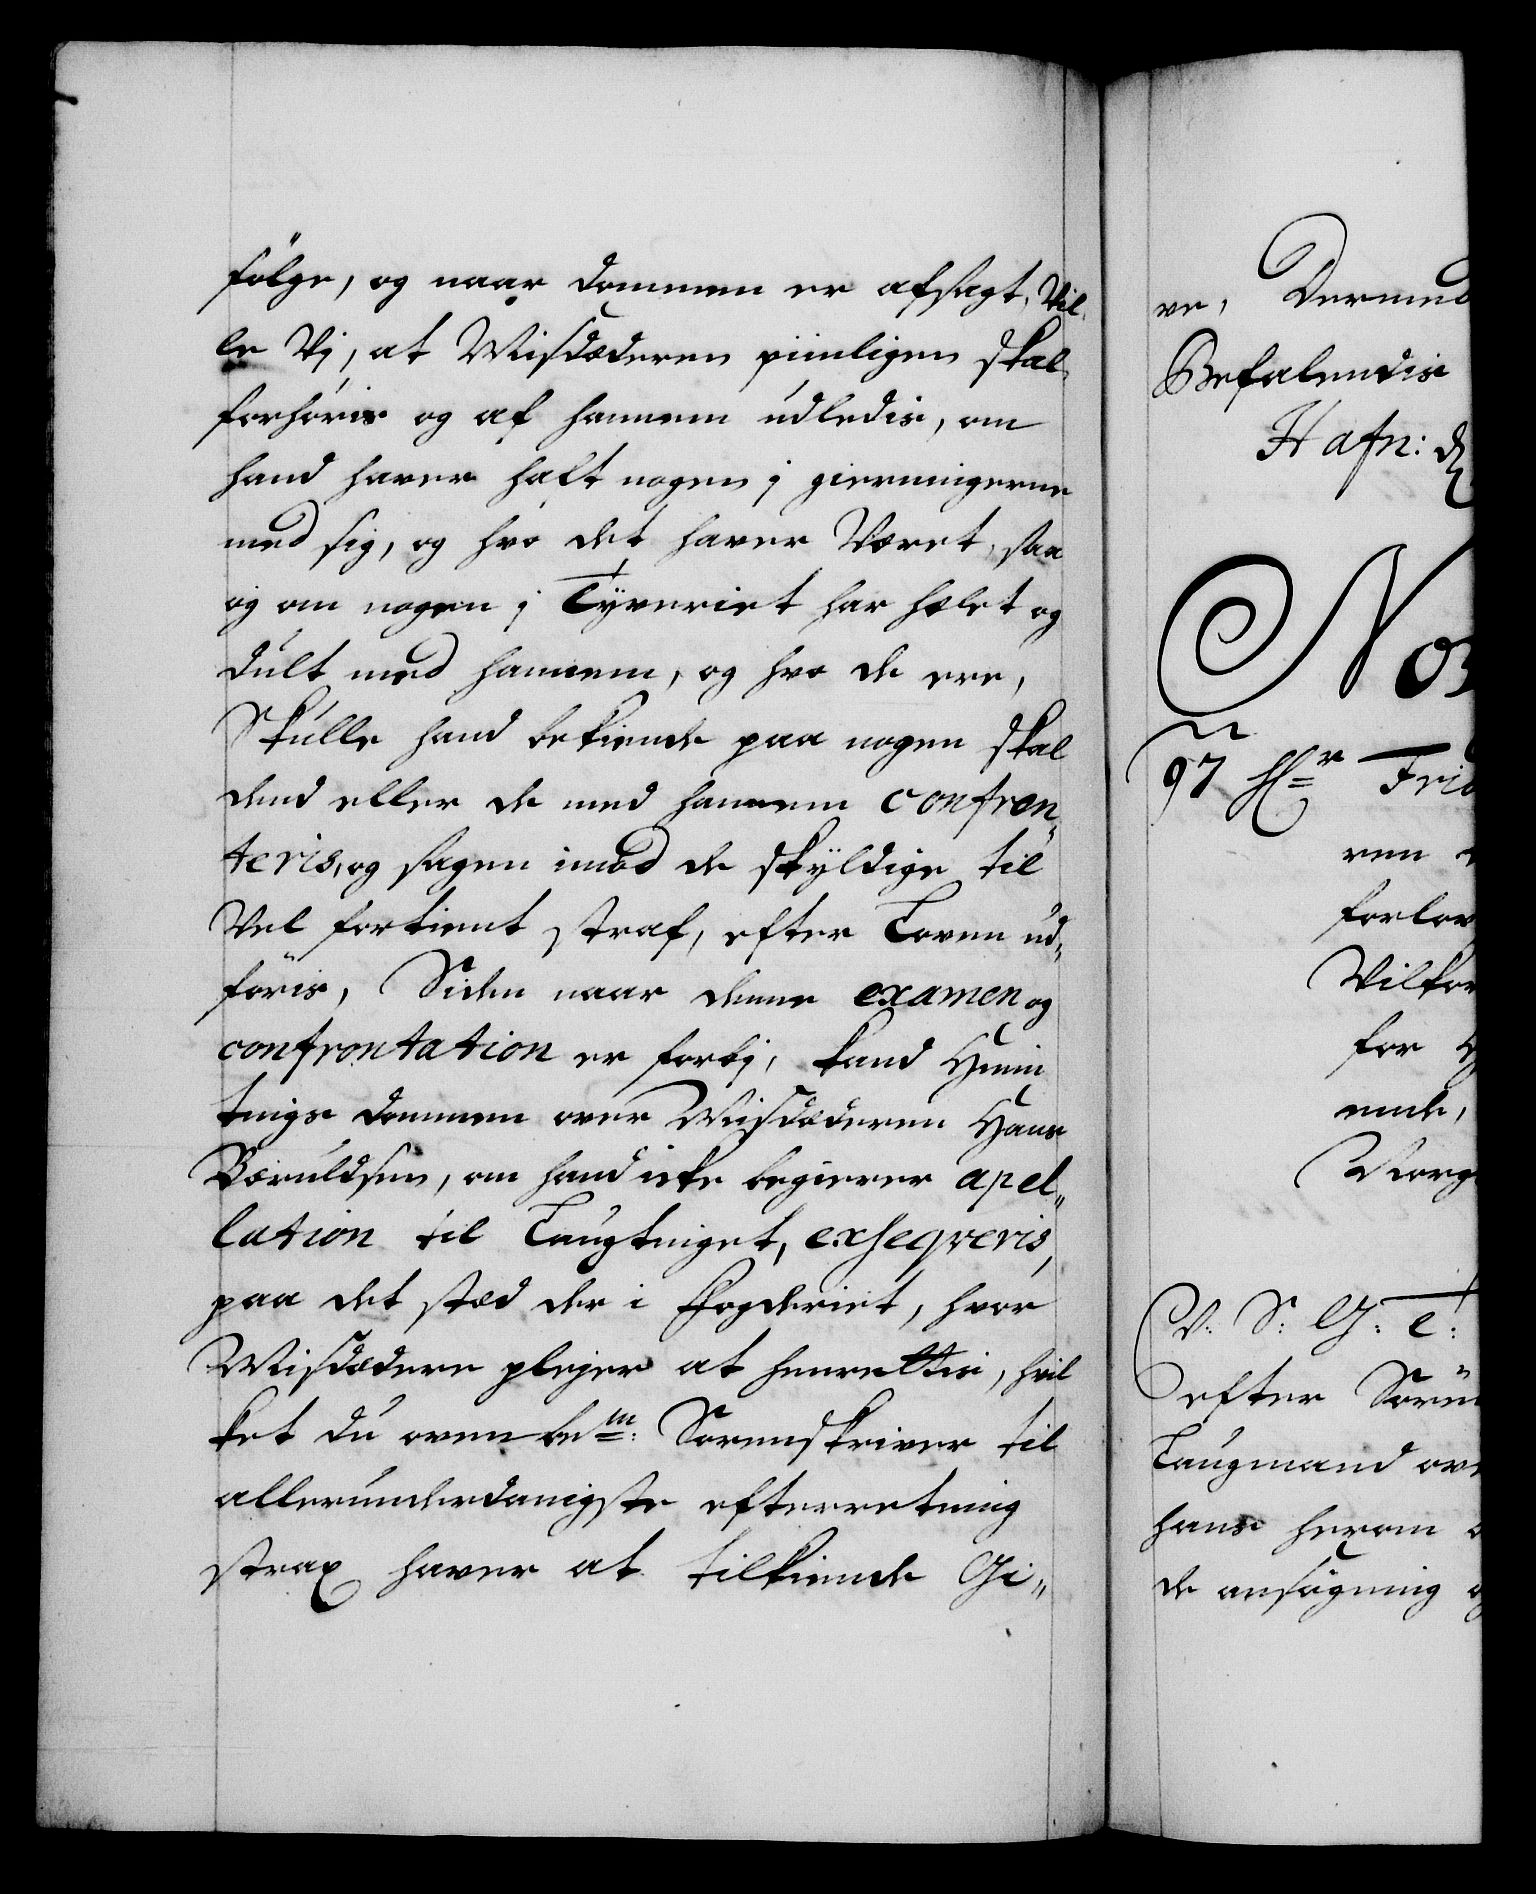 følge, og naar dommen er afsagt, Vil¬
le Vj, at Misdæderen piinligen skal
forhøris og af hannem udledis, om
hand haver haft nogen i gierningerne
med sig, og hvo det haver Været, saa
og om nogen i Tÿveriet har hælet og
dult med hannem, og hvo de ere,
Skulle hand bekiende paa nogen skal
dend eller de med hannem confron„
teris, og sagen imod de skÿldige til
Vel fortient straf, efter Loven ud„
føris, Siden naar denne examen og
confrontation er forbj, kand Hiem
tings dommen over Misdæderen Hans
Bæruldsen, om hand icke begierer apel„
lation til Laugtinget, exseqveris,
paa det stæd der i Fogderiet, hvor
Misdædere plejer at henrettis, hvil
ket du ovenbem: Sorenskriver til
allerunderdanigste efterretning
strax haver at tilkiende Gi„
ve, Dermed
Befalendis
Hafn: d
No
97 Hr Frid
ren
forlov
Vilkor
for
ende,
Norg
V: S: G: e:
efter Søren
Laugmand ov
hans herom
de ansøgning